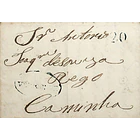 Snr Antonio 20
Joaqm de Souza
Rego
Caminha